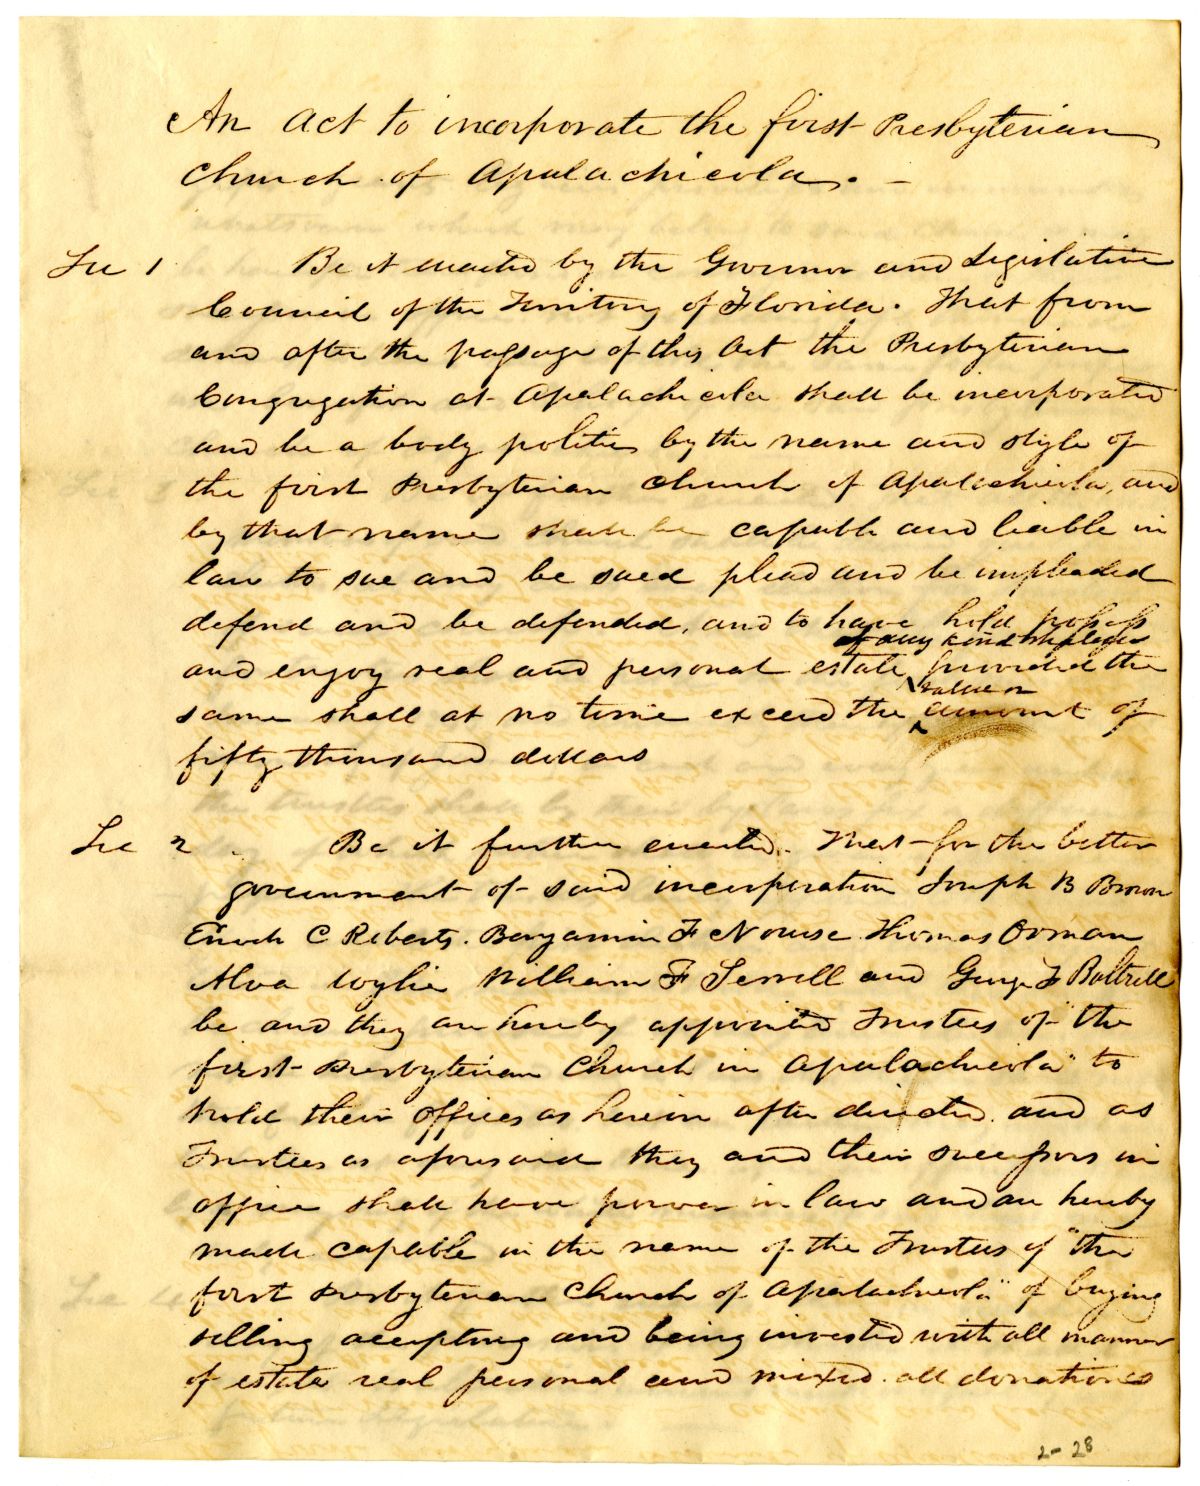 An Act to incorporate the first Presbyterian
Church of Apalachicola. —
Sec 1 Be it enacted by the Governor and Legislative
Council of the Territory of Florida. That from
and after the passage of this Act the Presbyterian
Congregation at Apalachicola shall be incorporated
and be a body politic by the name and style of
the first Presbyterian Church of Apalachicola, and
by that name shall be capable and liable in
law to sue and be sued plead and be impleaded
defend and be defended, and to have hold possess
of any kind
and enjoy real and personal estate provided the
value or
same shall at no time exceed the amount of
fifty thousand dollars
Sec 2 Be it further enacted. That for the better
government of said incorporation Joseph B Brown
Enoch C Roberts. Benjamin F Nourse Thomas Orman
Alva Wylie William F Serrell and George F Baltzell
be and they are hereby appointed Trustees of "the
first Presbyterian Church in Apalachicola" to
hold their offices as herein after directed. and as
Trustees as aforesaid they and their successors in
office shall have power in law and are hereby
made capable in the name of the Trustees of "the
first Presbyterian Church of Apalachicola" of buying
selling accepting and being invested with all manner
of estate real personal and mixed. all donations
2-28